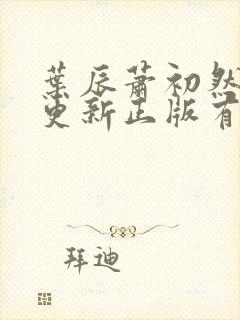 葉辰蕭初然
更新正版有
拜迪